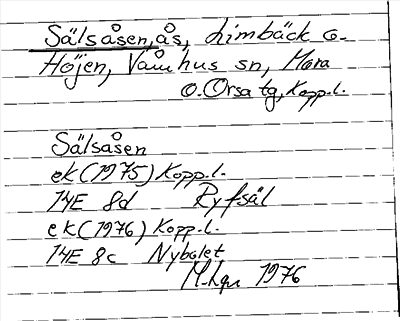 Sälsåsen, ås, Limbäck o.
Höjen, Våmhus sn, Mora
o. Orsa tg, Kopp.l.
Sälsåsen
ek (1975) Kopp.l.
14E 8d Ryfsäl
ek (1976) Kopp.l.
14E 8c Nybolet
1976